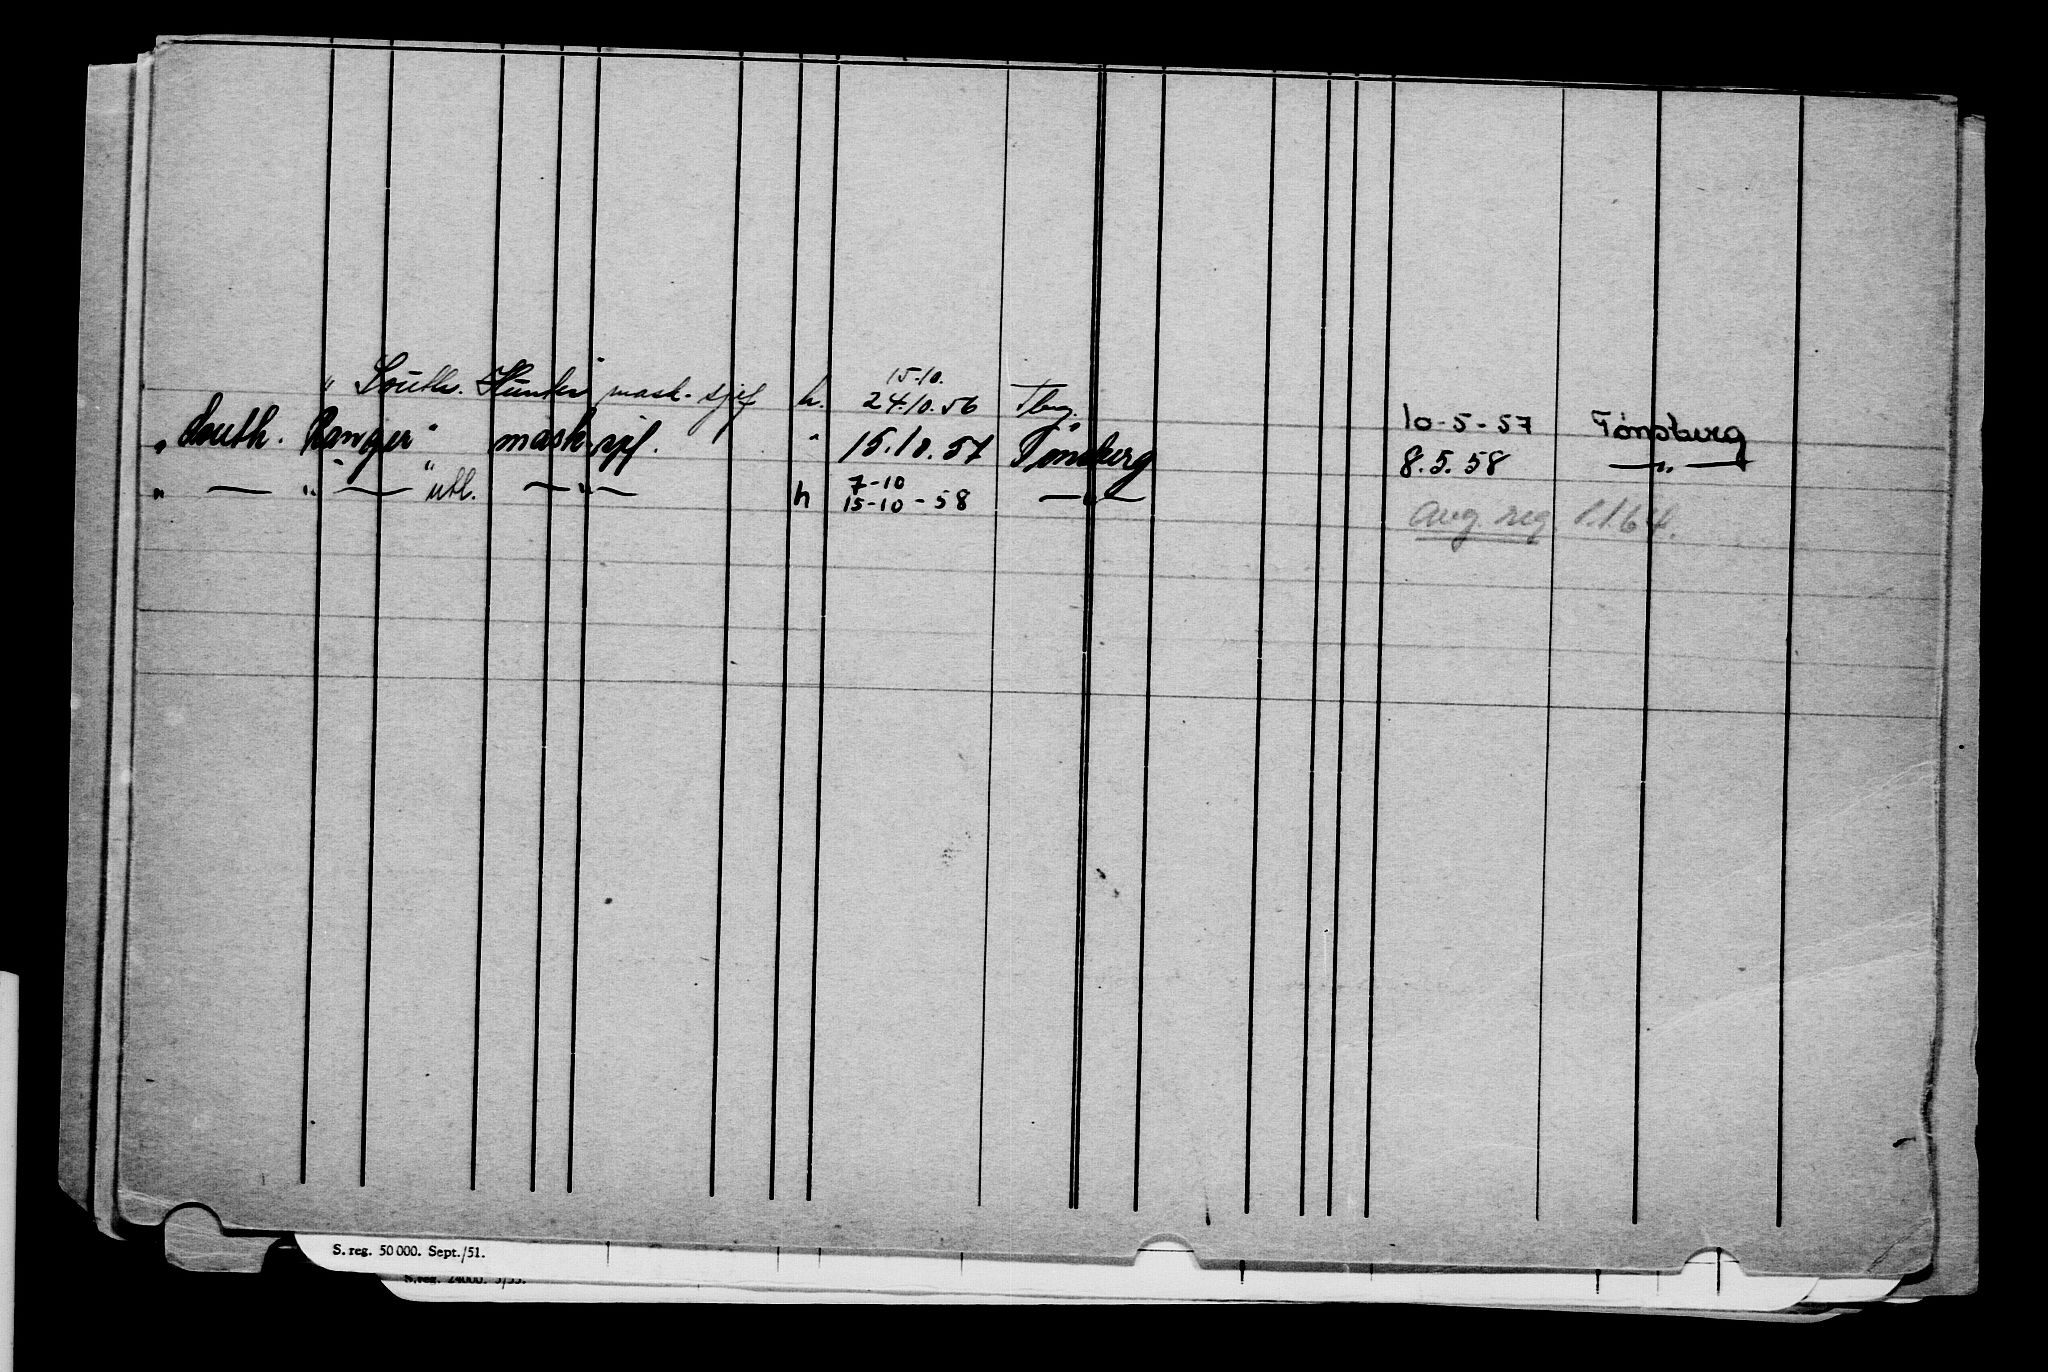 15-10.
" South. Hunter" mask. sjef h. 24.10.56 Tbg. 10-5-57 Tønsberg
"South. Ranger" mask.sjf. " 15.10.57 Tønsberg 8.5.58 —"—
7-10
" — " — " utl. —"— h 15-10-58 —"—
avg. reg. 1.1.64.
S. reg. 50 000. Sept./51.
S.reg. 24000. 5/55.